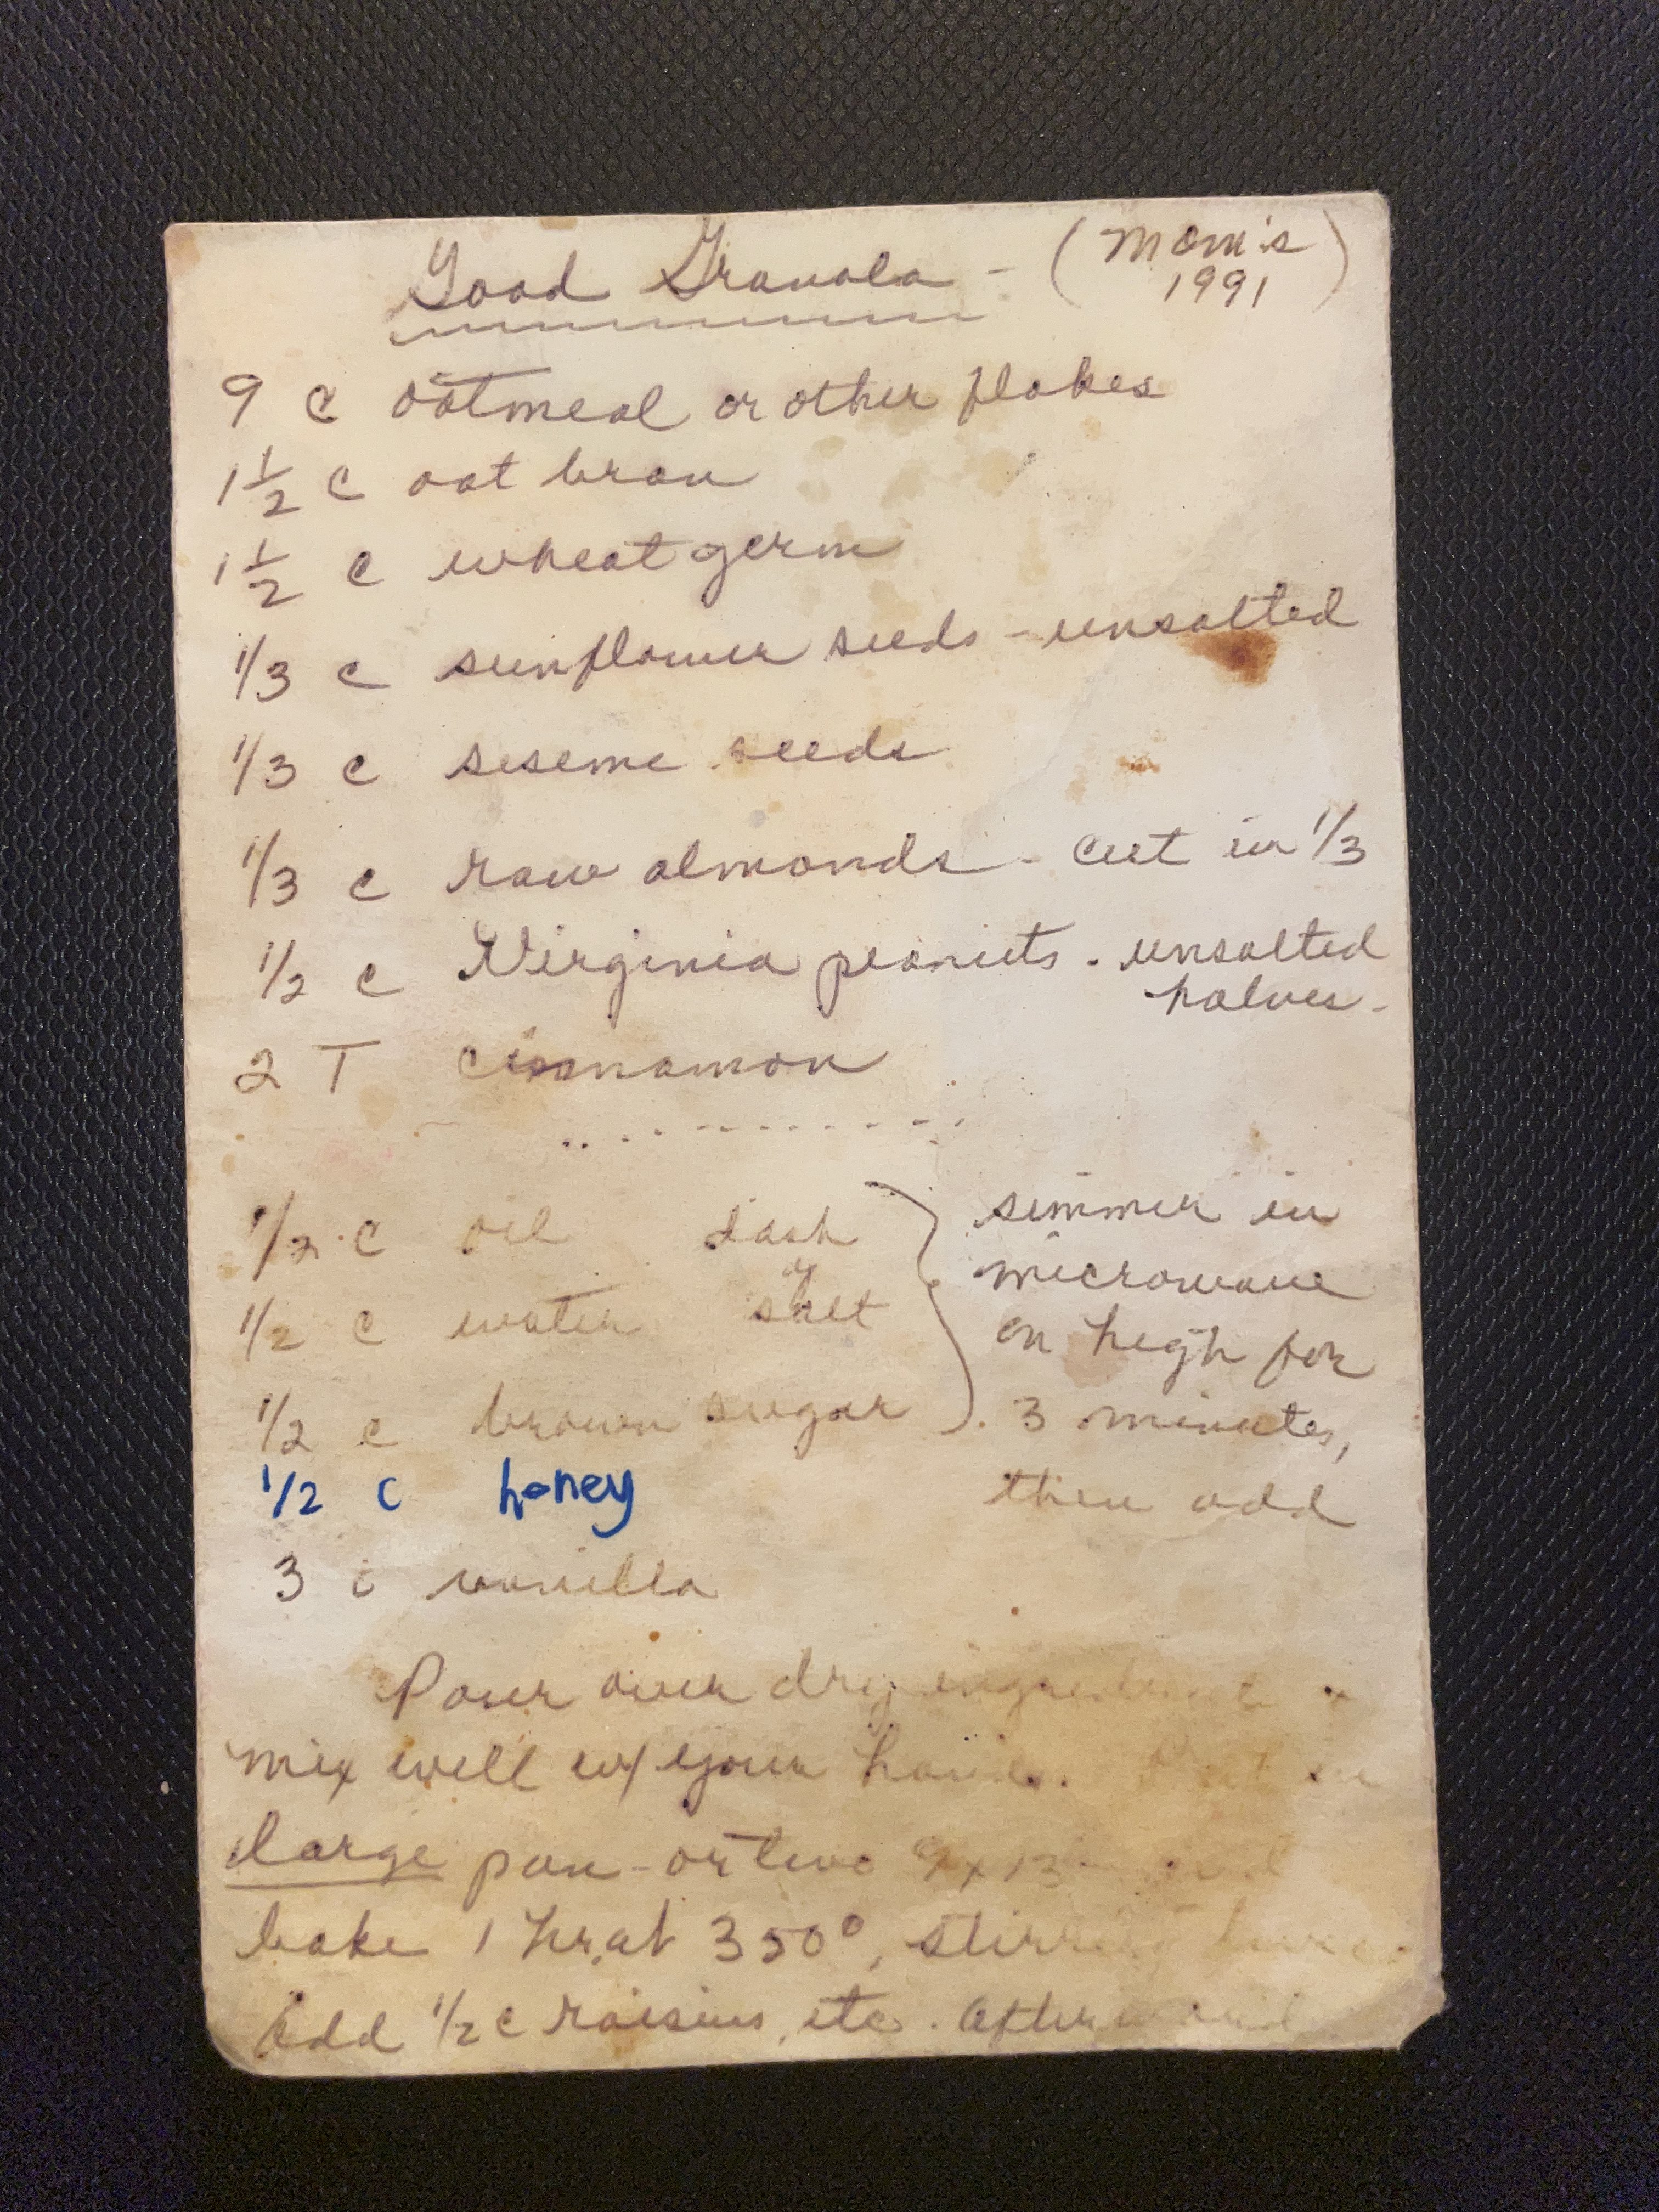 Good Granola - (Mom's
1991)
9 c oatmeal or other flakes
1 1/2 c oat bran
1 1/2 c wheat germ
1/3 c sunflower seeds - unsalted
1/3 c seseme seeds
1/3 c raw almonds - cut in 1/3
1/2 c Virginia peanuts - unsalted
halves -
2 T cinnamon
1/2 c oil dash
of
1/2 c water salt
1/2 c brown sugar
simmer in
microwave
on high for
3 minutes,
then add
1/2 c honey
3 vanilla
Pour over dry ingredients
mix well w/ your hands. Put in
large pan - or two 9x13
bake 1 hr at 350°, stirring
Add 1/2 c raisins, etc. afterward